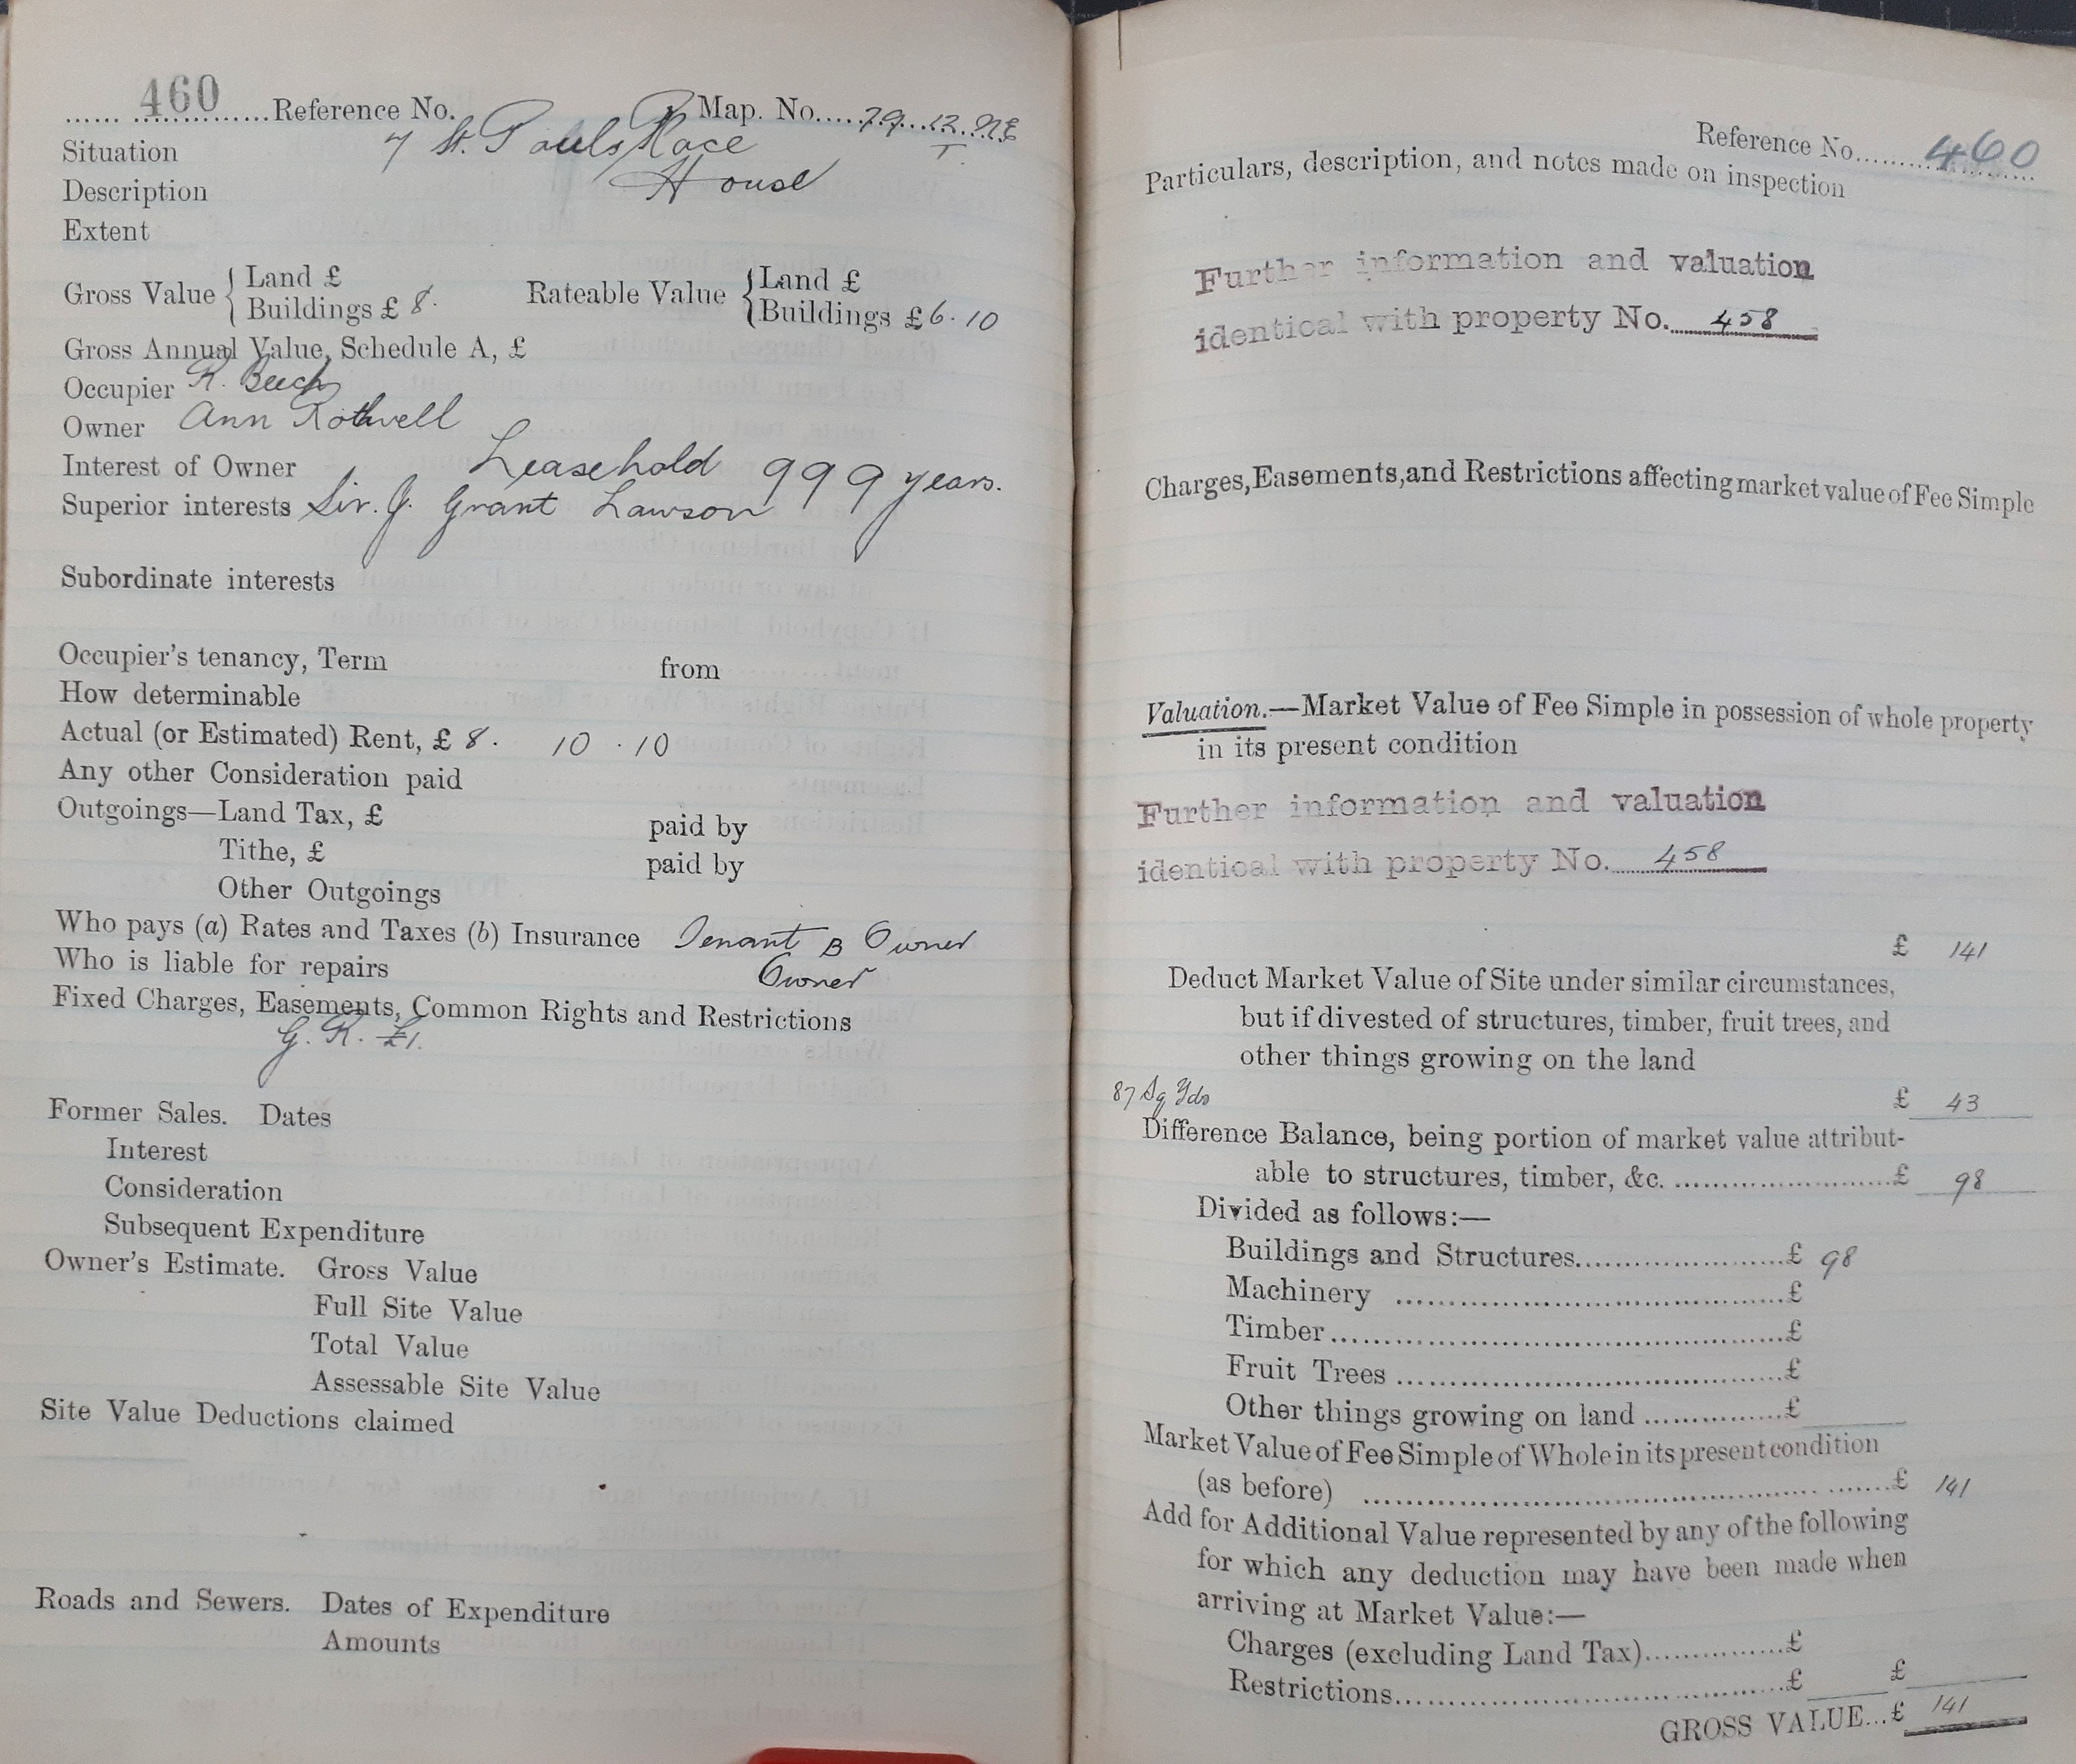 460 Reference No. Map. No. 79. 12. NE
T.
Situation 7 St. Pauls Place
Description House
Extent
Gross Value { Land £
Buildings £ 8.
Rateable Value { Land £
Buildings £6. 10
Gross Annual Value, Schedule A, £
Occupier R. Beech
Owner Ann Rothwell
Interest of Owner Leasehold 999 years.
Superior interests Sir. J. Grant Lawson
Subordinate interests
Occupier's tenancy, Term from
How determinable
Actual (or Estimated) Rent, £ 8. 10 . 10
Any other Consideration paid
Outgoings—Land Tax, £ paid by
Tithe, £ paid by
Other Outgoings
Who pays (a) Rates and Taxes (b) Insurance Tenant B Owner
Who is liable for repairs Owner
Fixed Charges, Easements, Common Rights and Restrictions
G. R. £1.
Former Sales. Dates
Interest
Consideration
Subsequent Expenditure
Owner's Estimate. Gross Value
Full Site Value
Total Value
Assessable Site Value
Site Value Deductions claimed
Roads and Sewers. Dates of Expenditure
Amounts
Reference No. 460
Particulars, description, and notes made on inspection
Further information and valuation
identical with property No. 458
Charges, Easements, and Restrictions affecting market value of Fee Simple
Valuation.—Market Value of Fee Simple in possession of whole property
in its present condition
Further information and valuation
identical with property No. 458
£ 141
Deduct Market Value of Site under similar circumstances,
but if divested of structures, timber, fruit trees, and
other things growing on the land
87 Sq Yds £ 43
Difference Balance, being portion of market value attribut-
able to structures, timber, &c. £ 98
Divided as follows:—
Buildings and Structures £ 98
Machinery £
Timber £
Fruit Trees £
Other things growing on land £
Market Value of Fee Simple of Whole in its present condition
(as before) £ 141
Add for Additional Value represented by any of the following
for which any deduction may have been made when
arriving at Market Value:—
Charges (excluding Land Tax) £
Restrictions £ £
GROSS VALUE...£ 141